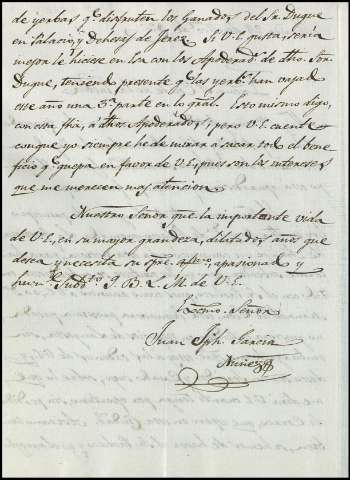 de yerbas q.e disfruten los Ganados del Sr. Duque
en Palacio, y Dehesas de Jerez. Si V.E. gusta, sería
mejor lo hiciese en esa con los Apoderad.s de dho. Sor.
Duque, teniendo presente q.e las yerb.s han vajado
este año una 3.a parte en lo gral. Eso mismo digo,
con esta fha, á dhos Apoderados; pero V.E. cuente
con que yo siempre he de mirar á sacar todo el bene
ficio q.e quepa en favor de V.E., pues son los intereses
que me merecen mas atencion.
Nuestro Señor gue la importante vida
de V.E., en su mayor grandeza, dilatados años que
desea y necesita su apasionad y
hum.e Subd.o Q.B.L.M. de V.E.
Excmo. Señor
Juan Jph. Garcia
Nuñez